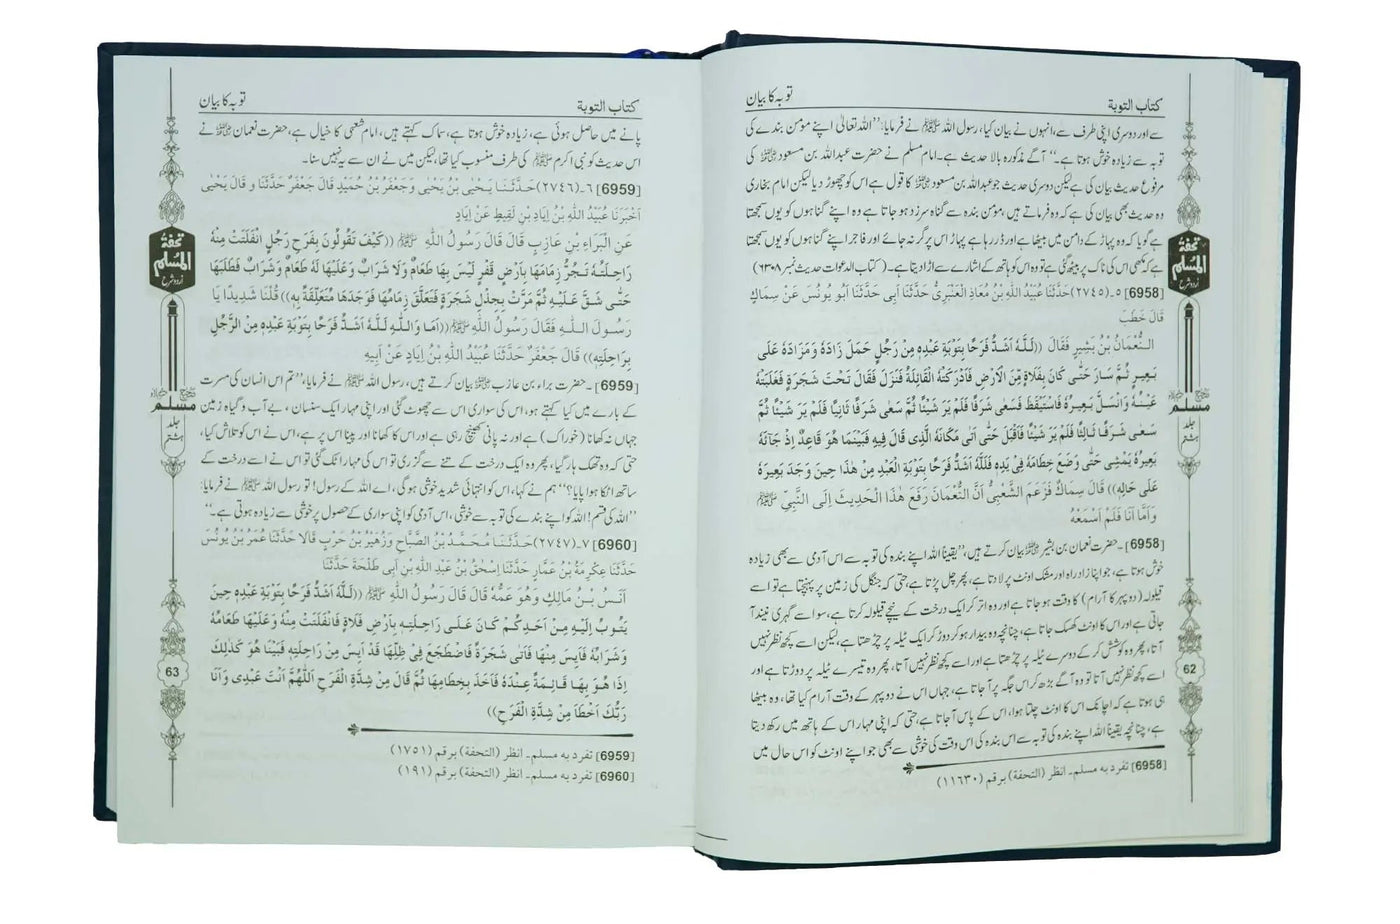 کتاب التوبة
توبہ کا بیان
سے اور دوسری اپنی طرف سے، انہوں نے بیان کیا، رسول اللہ ﷺ نے فرمایا: ’’اللہ تعالیٰ اپنے مومن بندے کی
توبہ سے زیادہ خوش ہوتا ہے۔‘‘ آگے مذکورہ بالا حدیث ہے۔ امام مسلم نے حضرت عبداللہ بن مسعود ؓ کی
مرفوع حدیث بیان کی ہے لیکن دوسری حدیث جو عبداللہ بن مسعود ؓ کا قول ہے اس کو چھوڑ دیا لیکن امام بخاری
وہ حدیث بھی بیان کی ہے کہ وہ فرماتے ہیں، مومن بندہ سے گناہ سرزد ہو جاتا ہے وہ اپنے گناہوں کو یوں سمجھتا
ہے گویا کہ وہ پہاڑ کے دامن میں بیٹھا ہے اور ڈر رہا ہے پہاڑ اس پر گر نہ جائے اور فاجر اپنے گناہوں کو یوں سمجھتا
ہے کہ مکھی اس کی ناک پر بیٹھ گئی ہے تو وہ اس کو ہاتھ کے اشارے سے اڑا دیتا ہے۔ (کتاب الدعوات حدیث نمبر ۶۳۰۸)
[6958] ٥۔(٢٧٤٥) حَدَّثَنَا عُبَيْدُ اللّٰهِ بْنُ مُعَاذٍ الْعَنْبَرِيُّ حَدَّثَنَا أَبِي حَدَّثَنَا أَبُو يُونُسَ عَنْ سِمَاكٍ
قَالَ خَطَبَ
النُّعْمَانُ بْنُ بَشِيرٍ فَقَالَ ((لَلّٰهُ أَشَدُّ فَرَحًا بِتَوْبَةِ عَبْدِهِ مِنْ رَجُلٍ حَمَلَ زَادَهُ وَمَزَادَهُ عَلَى
بَعِيرٍ ثُمَّ سَارَ حَتَّى كَانَ بِفَلَاةٍ مِّنَ الْأَرْضِ فَأَدْرَكَتْهُ الْقَائِلَةُ فَنَزَلَ فَقَالَ تَحْتَ شَجَرَةٍ فَغَلَبَتْهُ
عَيْنُهُ وَانْسَلَّ بَعِيرُهُ فَاسْتَيْقَظَ فَسَعٰى شَرَفًا فَلَمْ يَرَ شَيْئًا ثُمَّ سَعٰى شَرَفًا ثَانِيًا فَلَمْ يَرَ شَيْئًا ثُمَّ
سَعٰى شَرَفًا ثَالِثًا فَلَمْ يَرَ شَيْئًا فَأَقْبَلَ حَتَّى أَتٰى مَكَانَهُ الَّذِي قَالَ فِيهِ فَبَيْنَمَا هُوَ قَاعِدٌ إِذْ جَائَهُ
بَعِيرُهُ يَمْشِي حَتَّى وَضَعَ خِطَامَهُ فِي يَدِهِ فَلَلّٰهُ أَشَدُّ فَرَحًا بِتَوْبَةِ الْعَبْدِ مِنْ هٰذَا حِينَ وَجَدَ بَعِيرَهُ
عَلَى حَالِهِ)) قَالَ سِمَاكٌ فَزَعَمَ الشَّعْبِيُّ أَنَّ النُّعْمَانَ رَفَعَ هٰذَا الْحَدِيثَ إِلَى النَّبِيِّ ﷺ
وَأَمَّا أَنَا فَلَمْ أَسْمَعْهُ
[6958]۔ حضرت نعمان بن بشیر ؓ بیان کرتے ہیں، ’’یقیناً اللہ اپنے بندہ کی توبہ سے اس آدمی سے بھی زیادہ
خوش ہوتا ہے، جو اپنا زاد راہ اور مشک اونٹ پر لادتا ہے، پھر چل پڑتا ہے حتی کہ جنگل کی زمین پر پہنچتا ہے تو اسے
قیلولہ (دوپہر کا آرام) کا وقت ہو جاتا ہے اور وہ اتر کر ایک درخت کے نیچے قیلولہ کرتا ہے، سو اسے گہری نیند آ
جاتی ہے اور اس کا اونٹ کھسک جاتا ہے، چنانچہ وہ بیدار ہو کر دوڑ کر ایک ٹیلہ پر چڑھتا ہے، لیکن اسے کچھ نظر نہیں
آتا، پھر وہ کوشش کر کے دوسرے ٹیلہ پر چڑھتا ہے اور اسے کچھ نظر نہیں آتا، پھر وہ تیسرے ٹیلہ پر دوڑتا ہے اور
اسے کچھ نظر نہیں آتا تو وہ آگے بڑھ کر اس جگہ پر آ جاتا ہے، جہاں اس نے دوپہر کے وقت آرام کیا تھا، وہ بیٹھا
ہی ہوتا ہے کہ اچانک اس کا اونٹ چلتا ہوا، اس کے پاس آ جاتا ہے، حتی کہ اپنی مہار اس کے ہاتھ میں رکھ دیتا
ہے، چنانچہ یقیناً اللہ اپنے بندہ کی توبہ سے اس بندہ کی اس وقت کی خوشی سے بھی جو اپنے اونٹ کو اس حال میں
[6958] تفرد به مسلم۔ انظر (التحفة) برقم (١١٦٣٠)
تحفة
المسلم
اُردو شرح
صحیح
مسلم
جلد
ہشتم
62
کتاب التوبة
توبہ کا بیان
پانے میں حاصل ہوئی ہے، زیادہ خوش ہوتا ہے، سماک کہتے ہیں، امام شعبی کا خیال ہے، حضرت نعمان ؓ نے
اس حدیث کو نبی اکرم ﷺ کی طرف منسوب کیا تھا، لیکن میں نے ان سے یہ نہیں سنا۔
[6959] ٦۔(٢٧٤٦) حَدَّثَنَا يَحْيٰى بْنُ يَحْيٰى وَجَعْفَرُ بْنُ حُمَيْدٍ قَالَ جَعْفَرٌ حَدَّثَنَا و قَالَ يَحْيٰى
أَخْبَرَنَا عُبَيْدُ اللّٰهِ بْنُ إِيَادِ بْنِ لَقِيطٍ عَنْ إِيَادٍ
عَنِ الْبَرَاءِ بْنِ عَازِبٍ قَالَ قَالَ رَسُولُ اللّٰهِ ﷺ ((كَيْفَ تَقُولُونَ بِفَرَحِ رَجُلٍ انْفَلَتَتْ مِنْهُ
رَاحِلَتُهُ تَجُرُّ زِمَامَهَا بِأَرْضٍ قَفْرٍ لَيْسَ بِهَا طَعَامٌ وَلَا شَرَابٌ وَعَلَيْهَا لَهُ طَعَامٌ وَشَرَابٌ فَطَلَبَهَا
حَتَّى شَقَّ عَلَيْهِ ثُمَّ مَرَّتْ بِجِذْلِ شَجَرَةٍ فَتَعَلَّقَ زِمَامُهَا فَوَجَدَهَا مُتَعَلِّقَةً بِهِ)) قُلْنَا شَدِيدًا يَا
رَسُولَ اللّٰهِ فَقَالَ رَسُولُ اللّٰهِ ﷺ ((أَمَا وَاللّٰهِ لَلّٰهُ أَشَدُّ فَرَحًا بِتَوْبَةِ عَبْدِهِ مِنَ الرَّجُلِ
بِرَاحِلَتِهِ)) قَالَ جَعْفَرٌ حَدَّثَنَا عُبَيْدُ اللّٰهِ بْنُ إِيَادٍ عَنْ أَبِيهِ
[6959]۔ حضرت براء بن عازب ؓ بیان کرتے ہیں، رسول اللہ ﷺ نے فرمایا، ’’تم اس انسان کی مسرت
کے بارے میں کیا کہتے ہو، اس کی سواری اس سے چھوٹ گئی اور اپنی مہار ایک سنسان، بے آب و گیاہ زمین
جہاں نہ کھانا (خوراک) ہے اور نہ پانی کھینچ رہی ہے اور اس کا کھانا اور پینا اس پر ہے، اس نے اس کو تلاش کیا،
حتی کہ وہ تھک ہار گیا، پھر وہ ایک درخت کے تنے سے گزری تو اس کی مہار اٹک گئی تو اس نے اسے درخت کے
ساتھ اٹکا ہوا پایا؟‘‘ ہم نے کہا، اس کو انتہائی شدید خوشی ہوگی، اے اللہ کے رسول! تو رسول اللہ ﷺ نے فرمایا:
’’اللہ کی قسم! اللہ کو اپنے بندے کی توبہ سے خوشی، اس آدمی کو اپنی سواری کے حصول پر خوشی سے زیادہ ہوتی ہے۔‘‘
[6960] ٧۔(٢٧٤٧) حَدَّثَنَا مُحَمَّدُ بْنُ الصَّبَّاحِ وَزُهَيْرُ بْنُ حَرْبٍ قَالَا حَدَّثَنَا عُمَرُ بْنُ يُونُسَ
حَدَّثَنَا عِكْرِمَةُ بْنُ عَمَّارٍ حَدَّثَنَا إِسْحٰقُ بْنُ عَبْدِ اللّٰهِ بْنِ أَبِي طَلْحَةَ حَدَّثَنَا
أَنَسُ بْنُ مَالِكٍ وَهُوَ عَمُّهُ قَالَ قَالَ رَسُولُ اللّٰهِ ﷺ ((لَلّٰهُ أَشَدُّ فَرَحًا بِتَوْبَةِ عَبْدِهِ حِينَ
يَتُوبُ إِلَيْهِ مِنْ أَحَدِكُمْ كَانَ عَلَى رَاحِلَتِهِ بِأَرْضِ فَلَاةٍ فَانْفَلَتَتْ مِنْهُ وَعَلَيْهَا طَعَامُهُ
وَشَرَابُهُ فَأَيِسَ مِنْهَا فَأَتٰى شَجَرَةً فَاضْطَجَعَ فِي ظِلِّهَا قَدْ أَيِسَ مِنْ رَاحِلَتِهِ فَبَيْنَا هُوَ كَذٰلِكَ
إِذَا هُوَ بِهَا قَائِمَةً عِنْدَهُ فَأَخَذَ بِخِطَامِهَا ثُمَّ قَالَ مِنْ شِدَّةِ الْفَرَحِ اللّٰهُمَّ أَنْتَ عَبْدِي وَأَنَا
رَبُّكَ أَخْطَأَ مِنْ شِدَّةِ الْفَرَحِ))
[6959] تفرد به مسلم۔ انظر (التحفة) برقم (١٧٥١)
[6960] تفرد به مسلم۔ انظر (التحفة) برقم (١٩١)
تحفة
المسلم
اُردو شرح
صحیح
مسلم
جلد
ہشتم
63